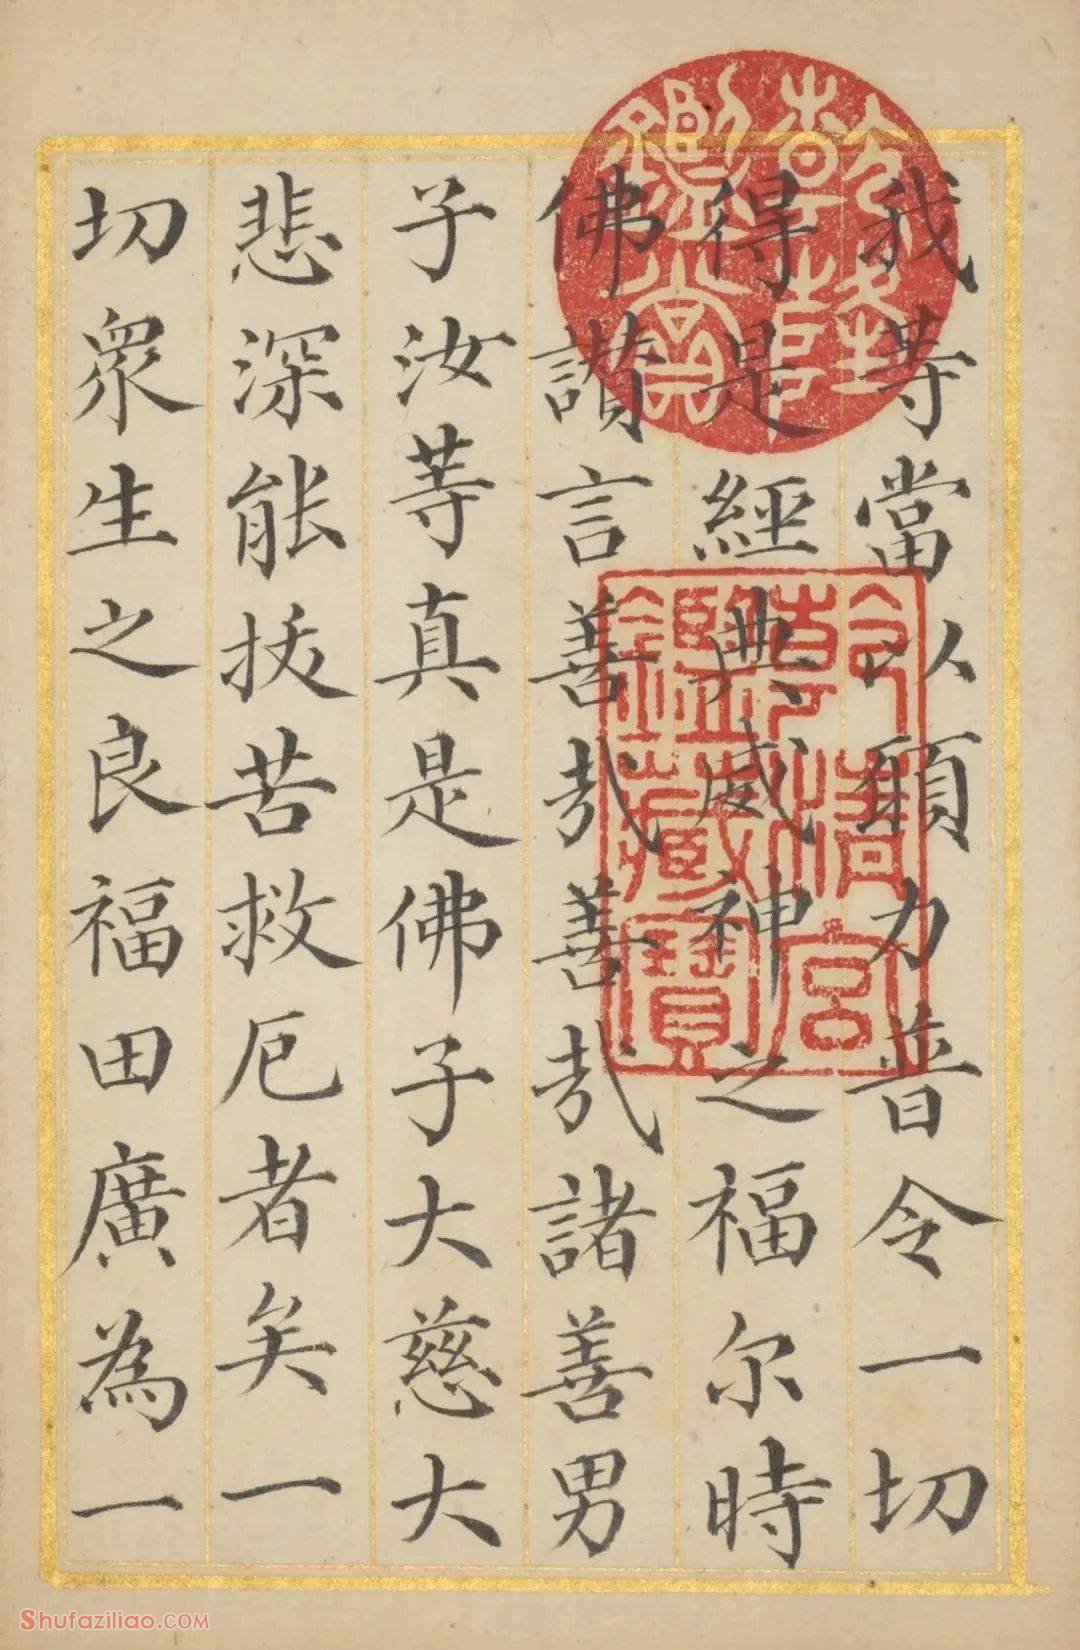 我等當以願力普令一切
得是經典威神之福尔時
佛讃言善哉善哉諸善男
子汝等真是佛子大慈大
悲深能拔苦救厄者矣一
切衆生之良福田廣為一
乾隆鑑賞
乾清宮鑑藏寶
Shufaziliao.COM